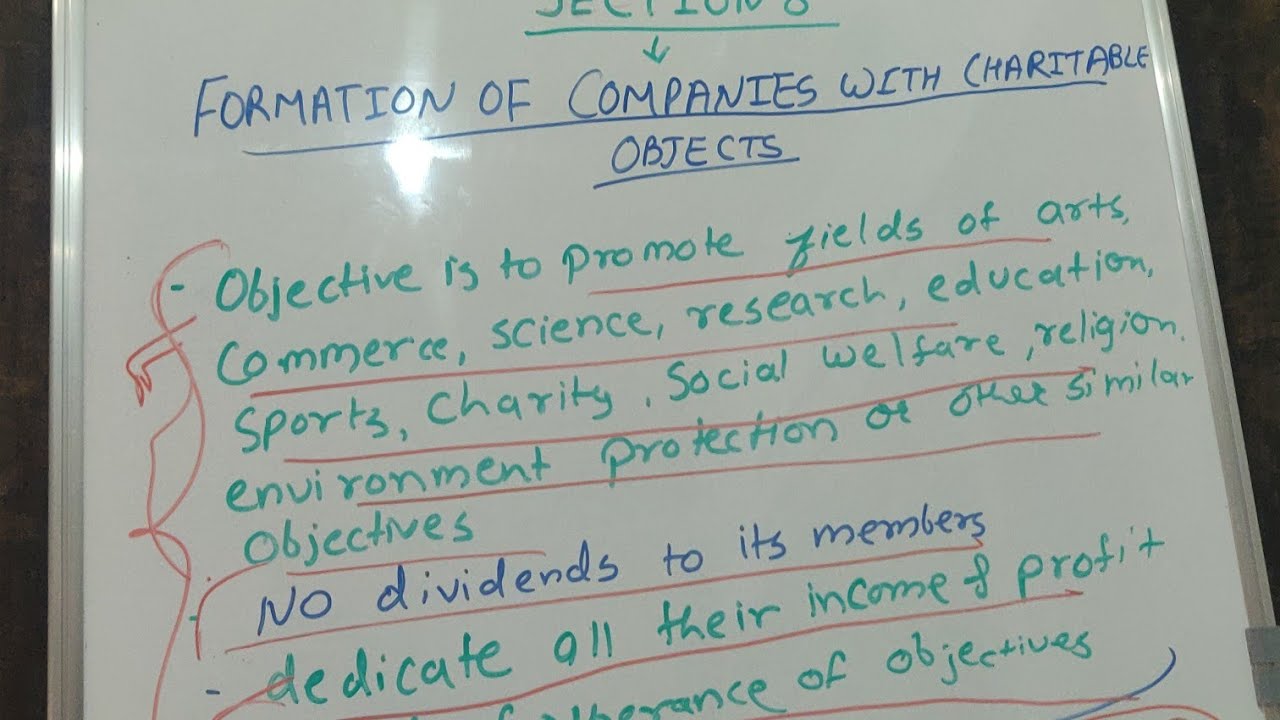 SECTION 8
FORMATION OF COMPANIES WITH CHARITABLE
OBJECTS
- Objective is to promote fields of arts,
Commerce, science, research, education,
Sports, Charity, Social welfare, religion.
environment protection or other similar
Objectives
- NO dividends to its members
- dedicate all their income & profit
of objectives